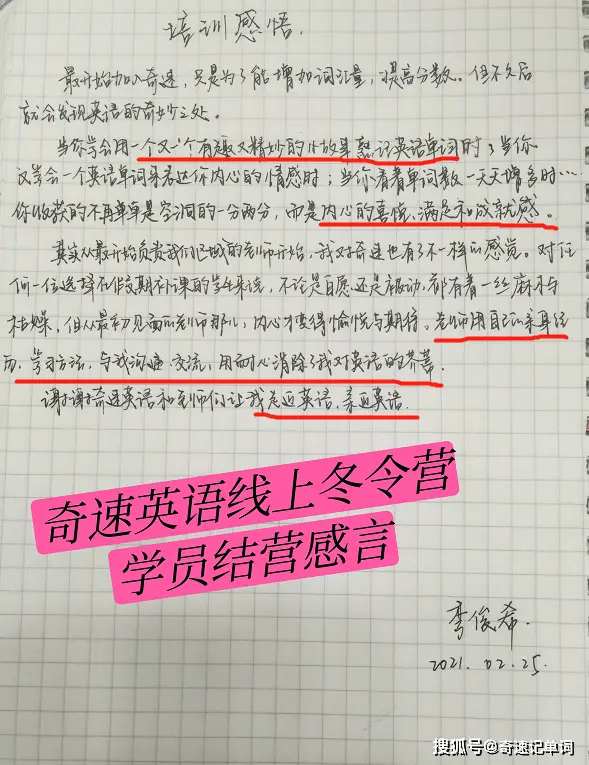 培训感悟.
最开始加入奇速,只是为了能增加词汇量,提高分数。但不久后
就会发现英语的奇妙之处。
当你学会用一个又一个有趣又精妙的小故事熟记英语单词时;当你
又学会一个英语单词来表达你内心的情感时;当你看着单词数一天天增多时…
你收获的不再单单是空洞的一分两分,而是内心的喜悦、满足和成就感。
其实从最开始负责我们区域的老师开始,我对奇速也有了不一样的感觉。对任
何一位选择在假期补课的学生来说,不论是自愿还是被动,都有着一丝麻木与
枯燥,但从最初见面的老师那儿,内心才变得愉悦与期待。老师用自己的亲身经
历、学习方法,与我沟通、交流,用耐心消除了我对英语的芥蒂.
谢谢奇速英语和老师们让我走近英语、亲近英语.
奇速英语线上冬令营
学员结营感言
俊希.
2021.02.25.
搜狐号@奇速记单词